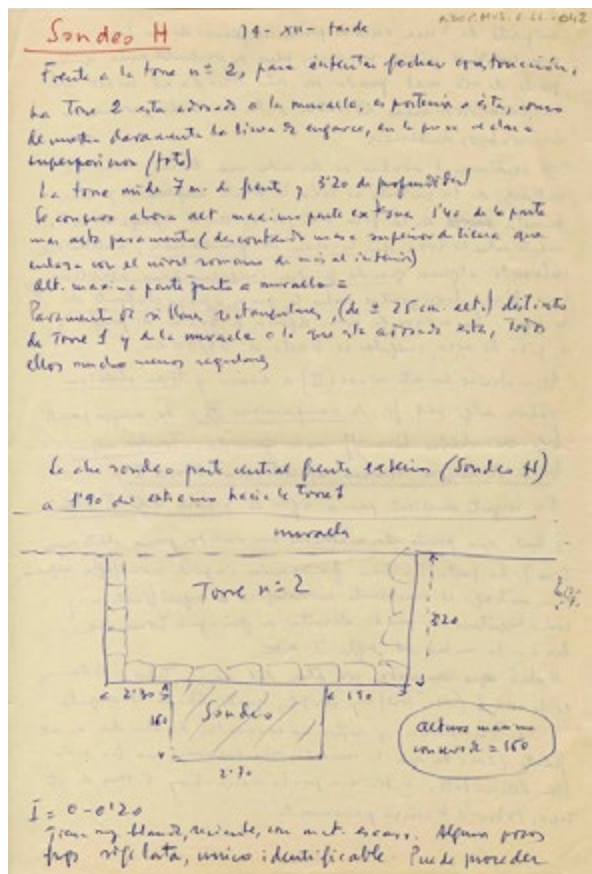 Sondeo H 14 - XII - tarde
Frente a la torre nº 2, para intentar fechar construcción,
La Torre 2 esta adosada a la muralla, es posterior a ésta, como
demuestra claramente la linea de engarce, en la que se alma
superposicion (foto)
La torre mide 7 m. de frente y 3'20 de profundidad
Se conserva ahora alt. maxima parte externa 1'40 de la parte
mas alta paramento (descontando masa superior de tierra que
enlaza con el nivel romano de más al interior)
Alt. maxima parte junto a muralla =
Paramento de sillares rectangulares, (de ± 25 cm. alt.) distinto
de Torre 1 y de la muralla a la que esta adosada esta, todos
ellos mucho menos regulares
Se abre sondeo parte central frente exterior (Sondeo H)
a 1'90 del extremo hacia la Torre 1
muralla
Torre nº 2
320
2'30
190
Sondeo
160
2'70
Altura maxima
conservada = 160
I = 0 - 0'20
Tierra muy blanda, reciente, con mat. escaso. Algunos pocos
frgs sigillata, unico identificable. Puede proceder